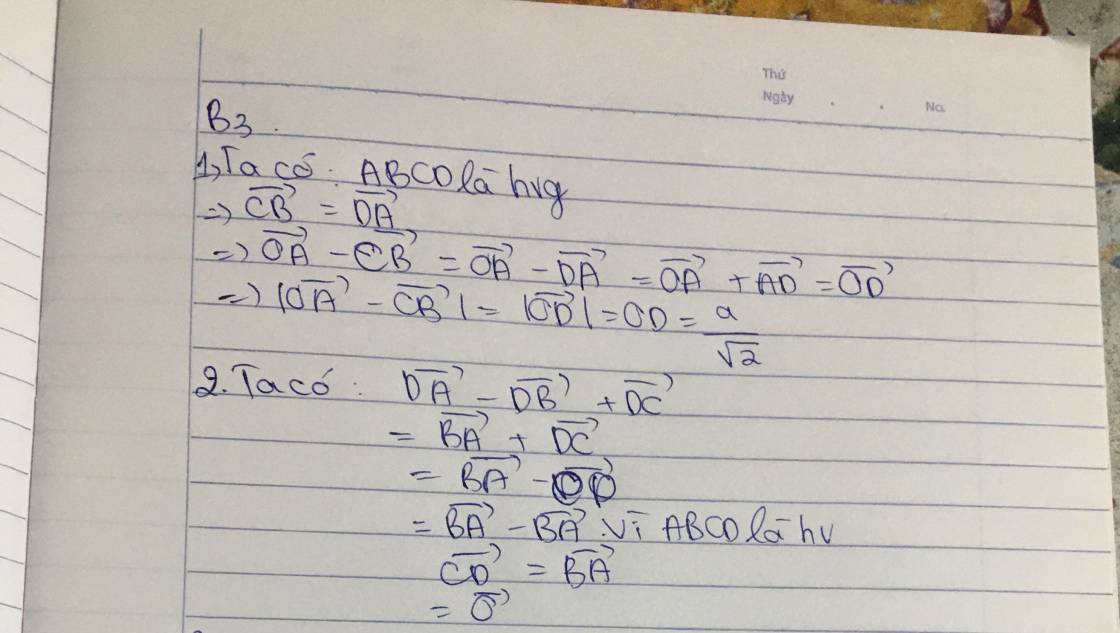 Thứ
Ngày . . No.
B3.
1, Ta có: ABCD là hvg
=> \overrightarrow{CB} = \overrightarrow{DA}
=> \overrightarrow{OA} - \overrightarrow{CB} = \overrightarrow{OA} - \overrightarrow{DA} = \overrightarrow{OA} + \overrightarrow{AD} = \overrightarrow{OD}
=> |\overrightarrow{OA} - \overrightarrow{CB}| = |\overrightarrow{OD}| = OD = \frac{a}{\sqrt{2}}
2. Ta có: \overrightarrow{DA} - \overrightarrow{DB} + \overrightarrow{DC}
= \overrightarrow{BA} + \overrightarrow{DC}
= \overrightarrow{BA} - \overrightarrow{CD}
= \overrightarrow{BA} - \overrightarrow{BA} . Vì ABCD là hv
\overrightarrow{CD} = \overrightarrow{BA}
= \overrightarrow{0}